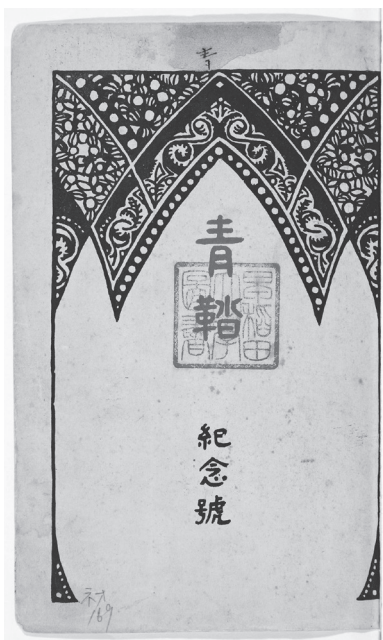 青
青鞜
紀念號
169